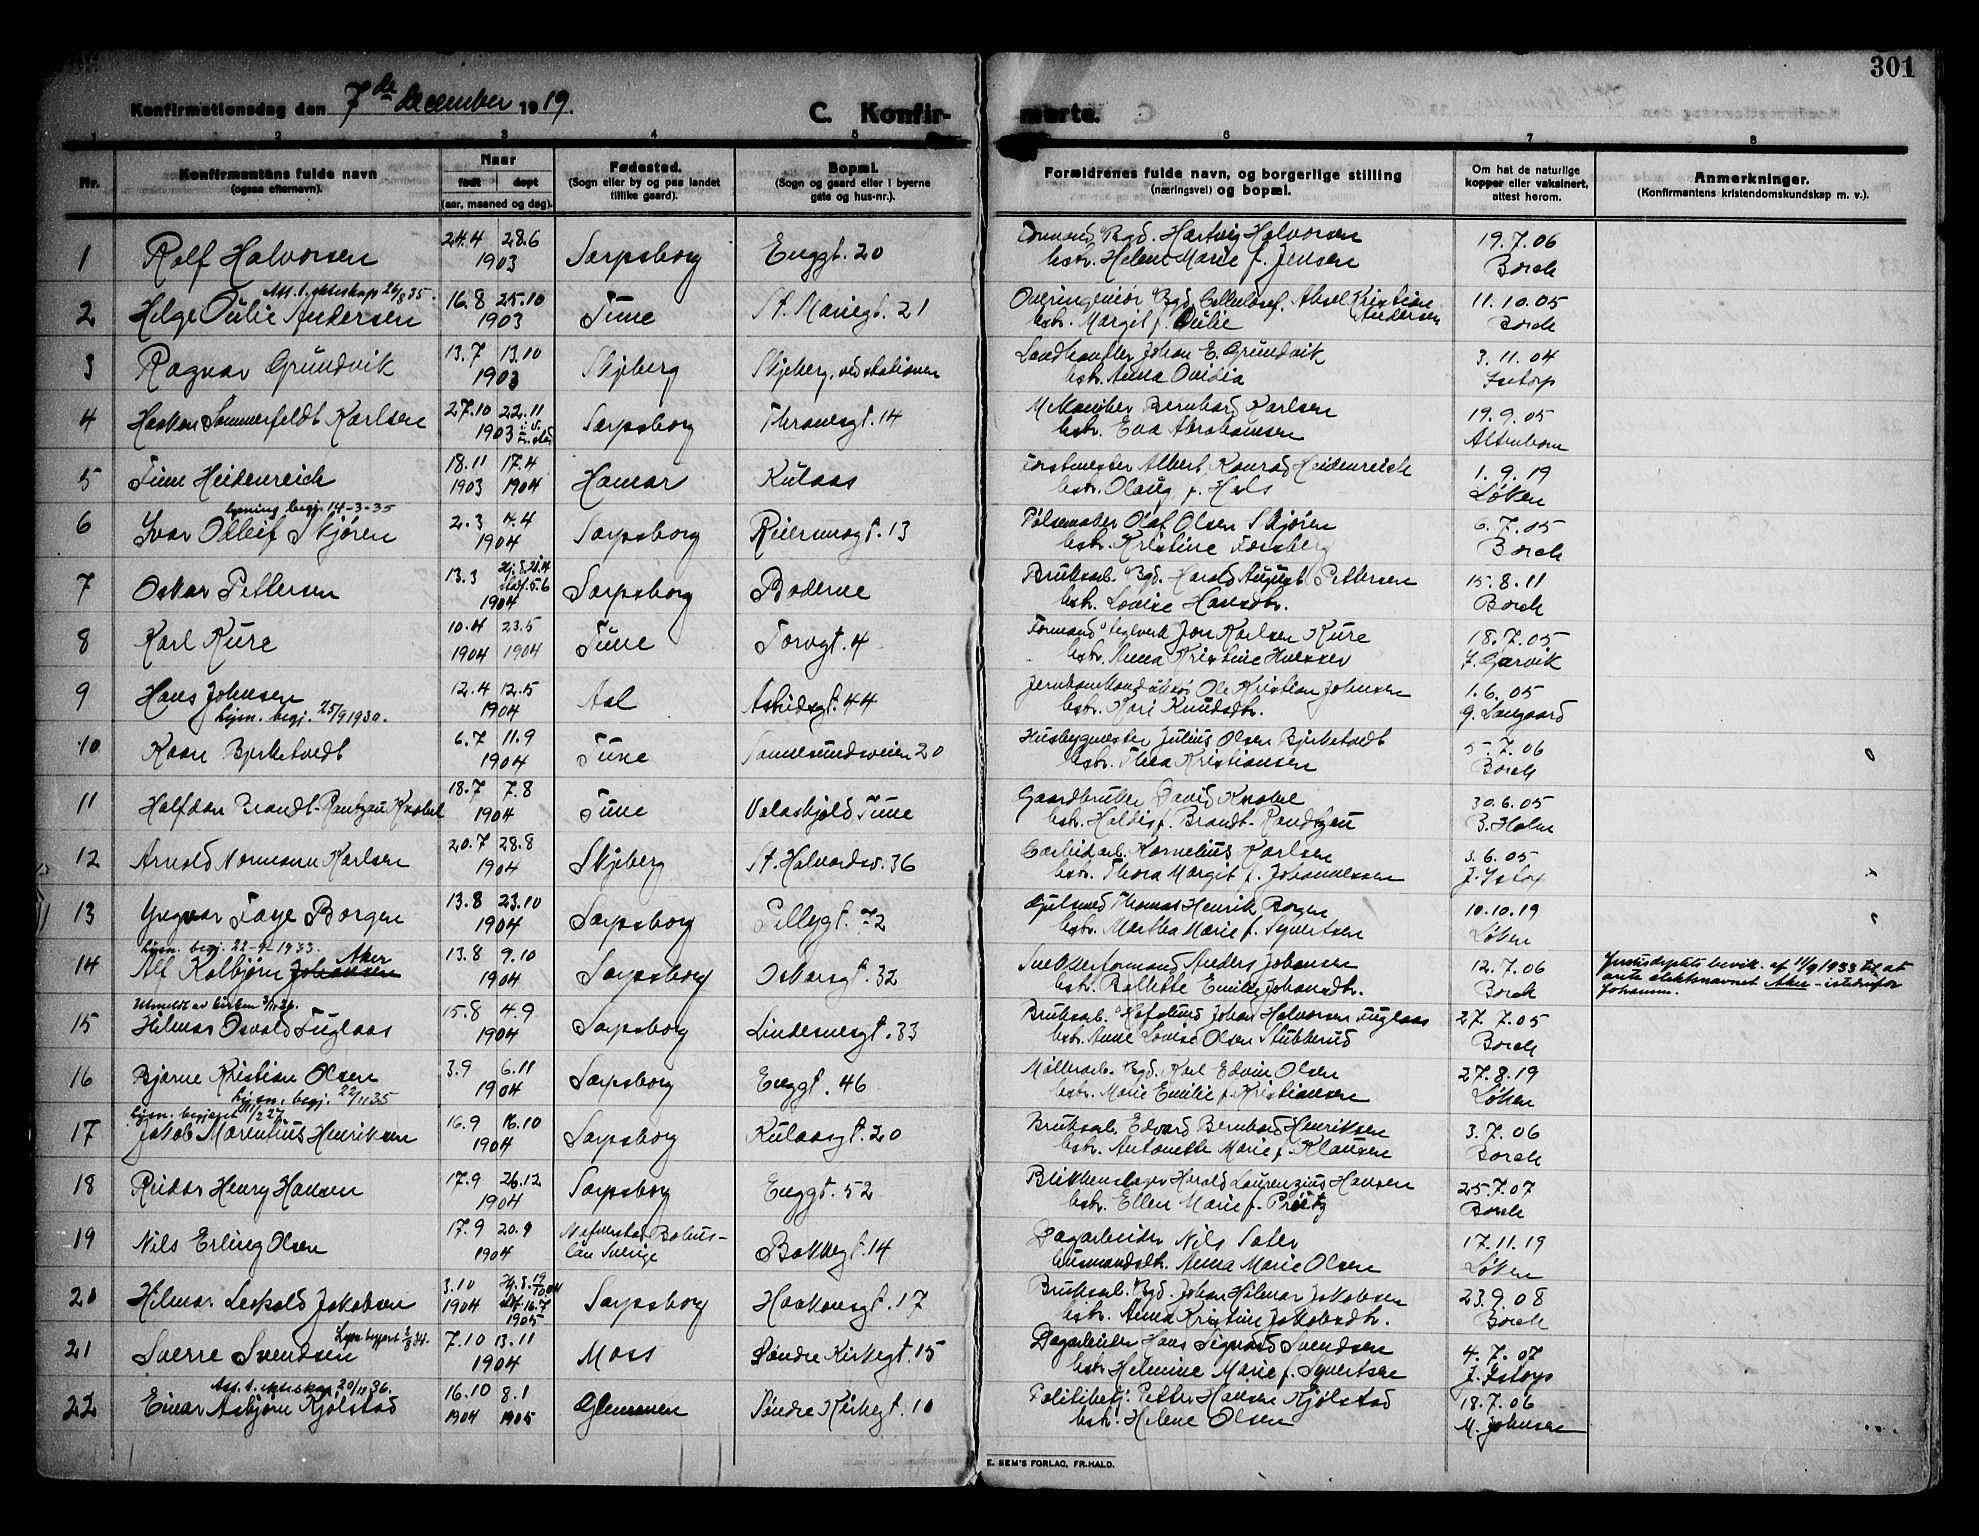 301
Konfirmationsdag den 7de december 1919.
C. Konfirmerte.
1 2 3 4 5 6 7 8
Nr.
Konfirmantens fulde navn
(ogsaa efternavn).
Naar
født døpt
(aar, maaned og dag).
Fødested.
(Sogn eller by og paa landet
tillike gaard).
Bopæl.
(Sogn og gaard eller i byerne
gate og hus-nr.).
Forældrenes fulde navn, og borgerlige stilling
(næringsvei) og bopæl.
Om hat de naturlige
kopper eller vaksinert,
attest herom.
Anmerkninger.
(Konfirmantens kristendomskundskap m. v.).
24.4 28.6 Formand Bgd. Hartvig Halvorsen 19.7.06
1 Rolf Halvorsen 1903 Sarpsborg Enggt. 20 hstr. Helene Marie f. Jensen Borch
Att. t. ekteskap 26/8 35.
16.8 25.10 Overingeniør Bgd. Cellulosef. Aksel Kristian 11.10.05
2 Helge Oulie Andersen 1903 Tune St. Mariegt. 21 hstr. Margit f. Oulie Andersen Borch
13.7 13.10 Landhandler Johan E. Grundvik 3.11.04
3 Ragnar Grundvik 1903 Skjeberg Skjeberg, ved stationen hstr. Anna Ovidia
27.10 22.11 Bernhard Karlsen 19.9.05
4 Haakon Sommerfeldt Karlsen 1903 Sarpsborg Thranesgt. 14 hstr. Eva Abrahamsen
18.11 17.4 Forstmester Albert Konrad Heidenreich 1.9.19
5 Tune Heidenreich 1903 1904 Hamar Kulaas hstr. Olaug f. Hals Løken
Lysning begj. 14-3-35
2.3 4.4 Pølsemaker Olaf Olsen Skjøren 6.7.05
6 Ivar Skjøren 1904 Sarpsborg Reiermosgt. 13 hstr. Kristine Forsberg Borch
13.3 Hj. d. 21.4 stadf. 5.6 Bruksarb. Bgd. Harald August Pettersen 15.8.11
7 Oskar Pettersen 1904 Sarpsborg Boderne hstr. Lovise Hansdtr. Borch
10.4 23.5 Formand Teglverk Jon Karlsen Kure 18.7.05
8 Karl Kure 1904 1904 Tune Torvgt. 4 hstr. Anna Kristine J. Garvik
12.4 12.5 Ole Kristian Johnsen 1.6.05
9 Hans Johnsen 1904 Aal Astridsgt. 44 hstr. Kari Knudsdtr. G. Langaard
Lysn. begj. 25/9 1930.
6.7 11.9 Husbygmester Julius Olsen Bjerketvedt 5.7.06
10 Kaare Bjerketvedt 1904 Tune Sannesundsveien 20 hstr. Thea Kristiansen Borch
18.7 7.8 Gaardbruker David Knobel 30.6.05
11 Halfdan Brandt-Rantzau Knobel 1904 Tune Valaskjold Tune hstr. Haldis f. Brandt-Randtzau B. Holm
20.7 28.8 Carbidarb. Kornelius Karlsen 3.6.05
12 Arnold Normann Karlsen 1904 Skjeberg St. Halvardsv. 36 hstr. Thora Margit f. Johannessen
13.8 23.10 Gulsmed Thomas Henrik Borgen 10.10.19
13 Yngvar Faye Borgen 1904 Sarpsborg Pellygt. 72 hstr. Martha Marie f. Syvertsen Løken
Lysn. begj. 22-9-1933. Aker
13.8 9.10 Anders Johansen 12.7.06
14 Alf Kolbjørn Johansen 1904 Sarpsborg Oskarsgt. 32 hstr. Bollette Emilie Johansdtr. Borch
Justisdeptets bevilg. af 11/9 1933 til at
anta slektsnavnet Aker istedenfor
Johansen.
Utmeldt av kirken 3/11 26.
15.8 4.9 Bruksarb. Hafslund Johan Halvorsen Fuglaas 27.7.05
15 Hilmar Osvald Fuglaas 1904 Sarpsborg Lindemosgt. 33 hstr. Anne Lovise Olsen Stubberud Borch
3.9 6.11 Møllerarb. Bgd. Karl Edvin Olsen 27.8.19
16 Bjarne Kristian Olsen 1904 Sarpsborg Enggt. 46 hstr. Marie Emilie f. Kristiansen Løken
Lysn. begj. 22/11 35
Lysn. begjært 11/2 27.
16.9 16.10 Bruksarb. Edvard Bernhard Henriksen 3.7.06
17 Jakob Marentius Henriksen 1904 Sarpsborg Kulaasgt. 20 hstr. Antonette Marie f. Klausen Borch
17.9 26.12 Blikkenslager Harald Laurenzius Hansen 25.7.07
18 Reidar Henry Hansen 1904 Sarpsborg Enggt. 52 hstr. Ellen Marie f. Prøitz Borch
17.9 20.9 Bohus- Dagarbeider Nils Sater 17.11.19
19 Nils Erling Olsen 1904 län Sverige Bakkegt. 14 husmandsdtr. Anna Marie Olsen Løken
3.10 Hj. d. 19/10 04 Bruksarb. Bgd. Johan Hilmar Jakobsen 23.9.08
20 Hilmar Leopold Jakobsen 1904 stf. 16.7 1905 Sarpsborg Haakonsgt. 17 hstr. Anna Kristine Jakobsdtr. Borch
Lysn. begjært 2/8 34.
7.10 13.11 Dagarbeider Hans Sigvard Svendsen 4.7.07
21 Sverre Svendsen 1904 Moss Søndre Kirkegt. 15 hstr. Helmine Marie f. Syvertsen
Att. t. ekteskap 20/11 36.
16.10 8.1 Politibetj. Petter Hansen Kjølstad 18.7.06
22 Einar Asbjørn Kjølstad 1904 1905 Glemmen Søndre Kirkegt. 10 hstr. Helene Olsen M. Johnsen
E. SEM'S FORLAG, FR.HALD.